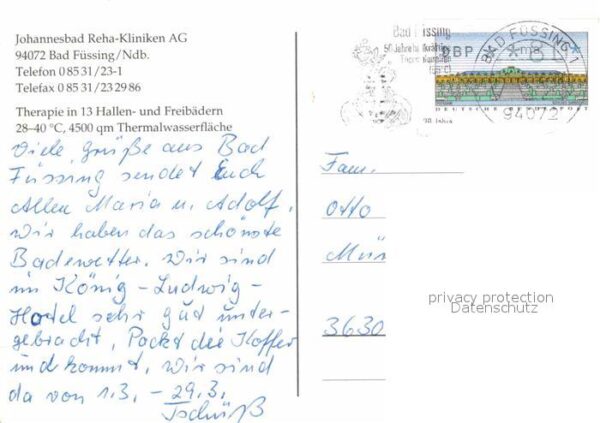 Johannesbad Reha-Kliniken AG
94072 Bad Füssing/Ndb.
Telefon 0 85 31/23-1
Telefax 0 85 31/23 29 86
Therapie in 13 Hallen- und Freibädern
28–40 °C, 4500 qm Thermalwasserfläche
Viele Grüße aus Bad
Füssing sendet Euch
Allen Maria u. Adolf.
Wir haben das schönste
Badewetter. Wir sind
im König-Ludwig-
Hotel sehr gut unter-
gebracht. Packt die Koffer
und kommt, wir sind
da von 1.3. – 29.3.
Tschüß
Bad Füssing
DBP
BAD FÜSSING 1
94072
DEUTSCHE BUNDESPOST
Fam.
Otto
Mün
3630
privacy protection
Datenschutz